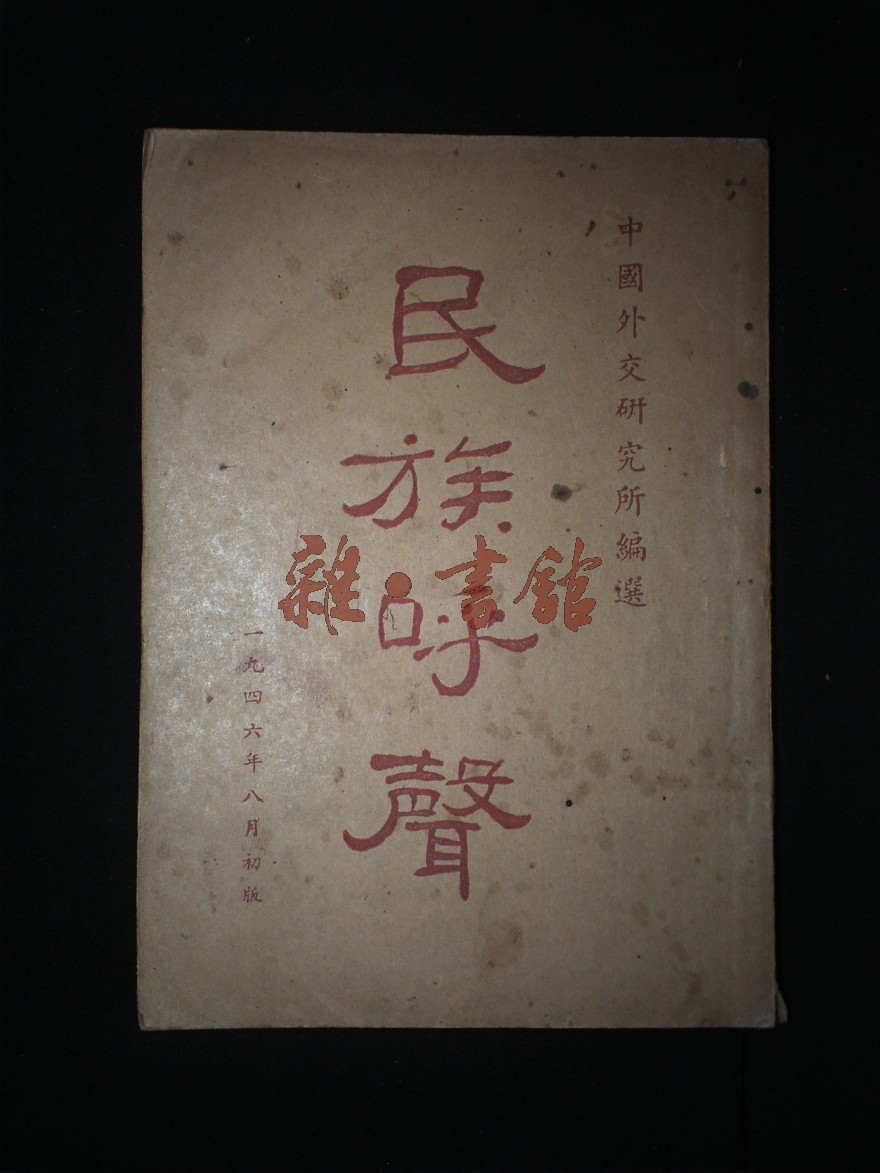 中國外交研究所編選
民族呼聲
一九四六年八月初版
雜·書館